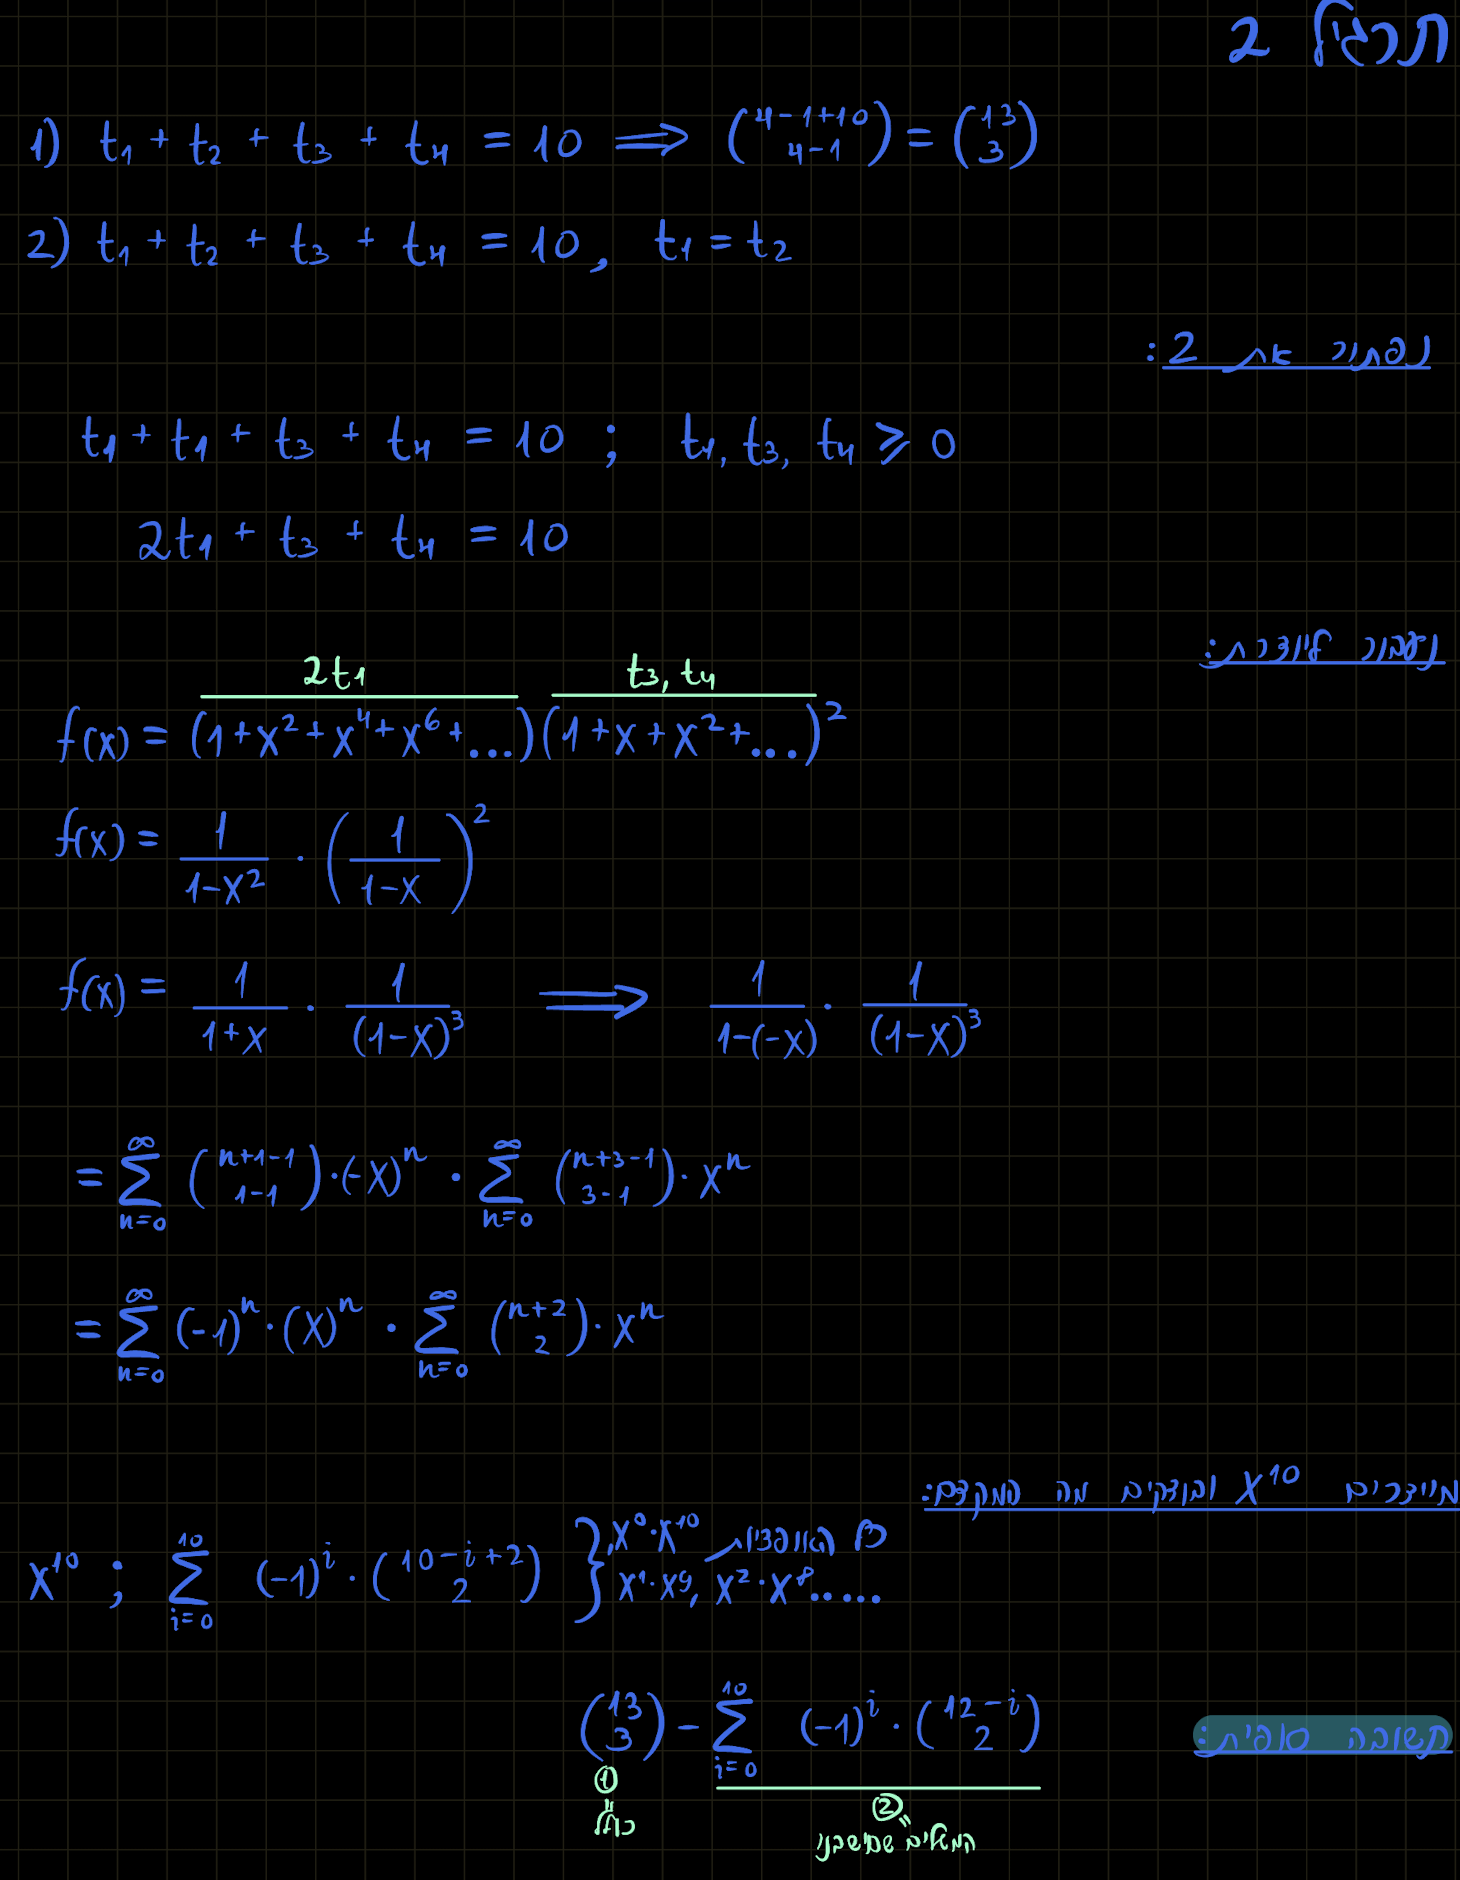 תרגיל 2
1) t₁ + t₂ + t₃ + t₄ = 10 ⟹ \binom{4-1+10}{4-1} = \binom{13}{3}
2) t₁ + t₂ + t₃ + t₄ = 10, t₁ = t₂
נפתור את 2:
t₁ + t₁ + t₃ + t₄ = 10 ; t₁, t₃, t₄ ⩾ 0
2t₁ + t₃ + t₄ = 10
נעבור ליוצרת:
2t₁ t₃, t₄
f(x) = (1+x²+x⁴+x⁶+...)(1+x+x²+...)²
f(x) = \frac{1}{1-x²} · (\frac{1}{1-x})²
f(x) = \frac{1}{1+x} · \frac{1}{(1-x)³} ⟹ \frac{1}{1-(-x)} · \frac{1}{(1-x)³}
= \sum_{n=0}^{∞} \binom{n+1-1}{1-1} · (-x)ⁿ · \sum_{n=0}^{∞} \binom{n+3-1}{3-1} · xⁿ
= \sum_{n=0}^{∞} (-1)ⁿ · (x)ⁿ · \sum_{n=0}^{∞} \binom{n+2}{2} · xⁿ
מייצרים x¹⁰ ובודקים מה המקדם:
x¹⁰ ; \sum_{i=0}^{10} (-1)^i · \binom{10-i+2}{2} } כל האופציות x⁰·x¹⁰,
x¹·x⁹, x²·x⁸......
תשובה סופית: \binom{13}{3} - \sum_{i=0}^{10} (-1)^i · \binom{12-i}{2}
① ②
" "
כולל המשלים שחישבנו